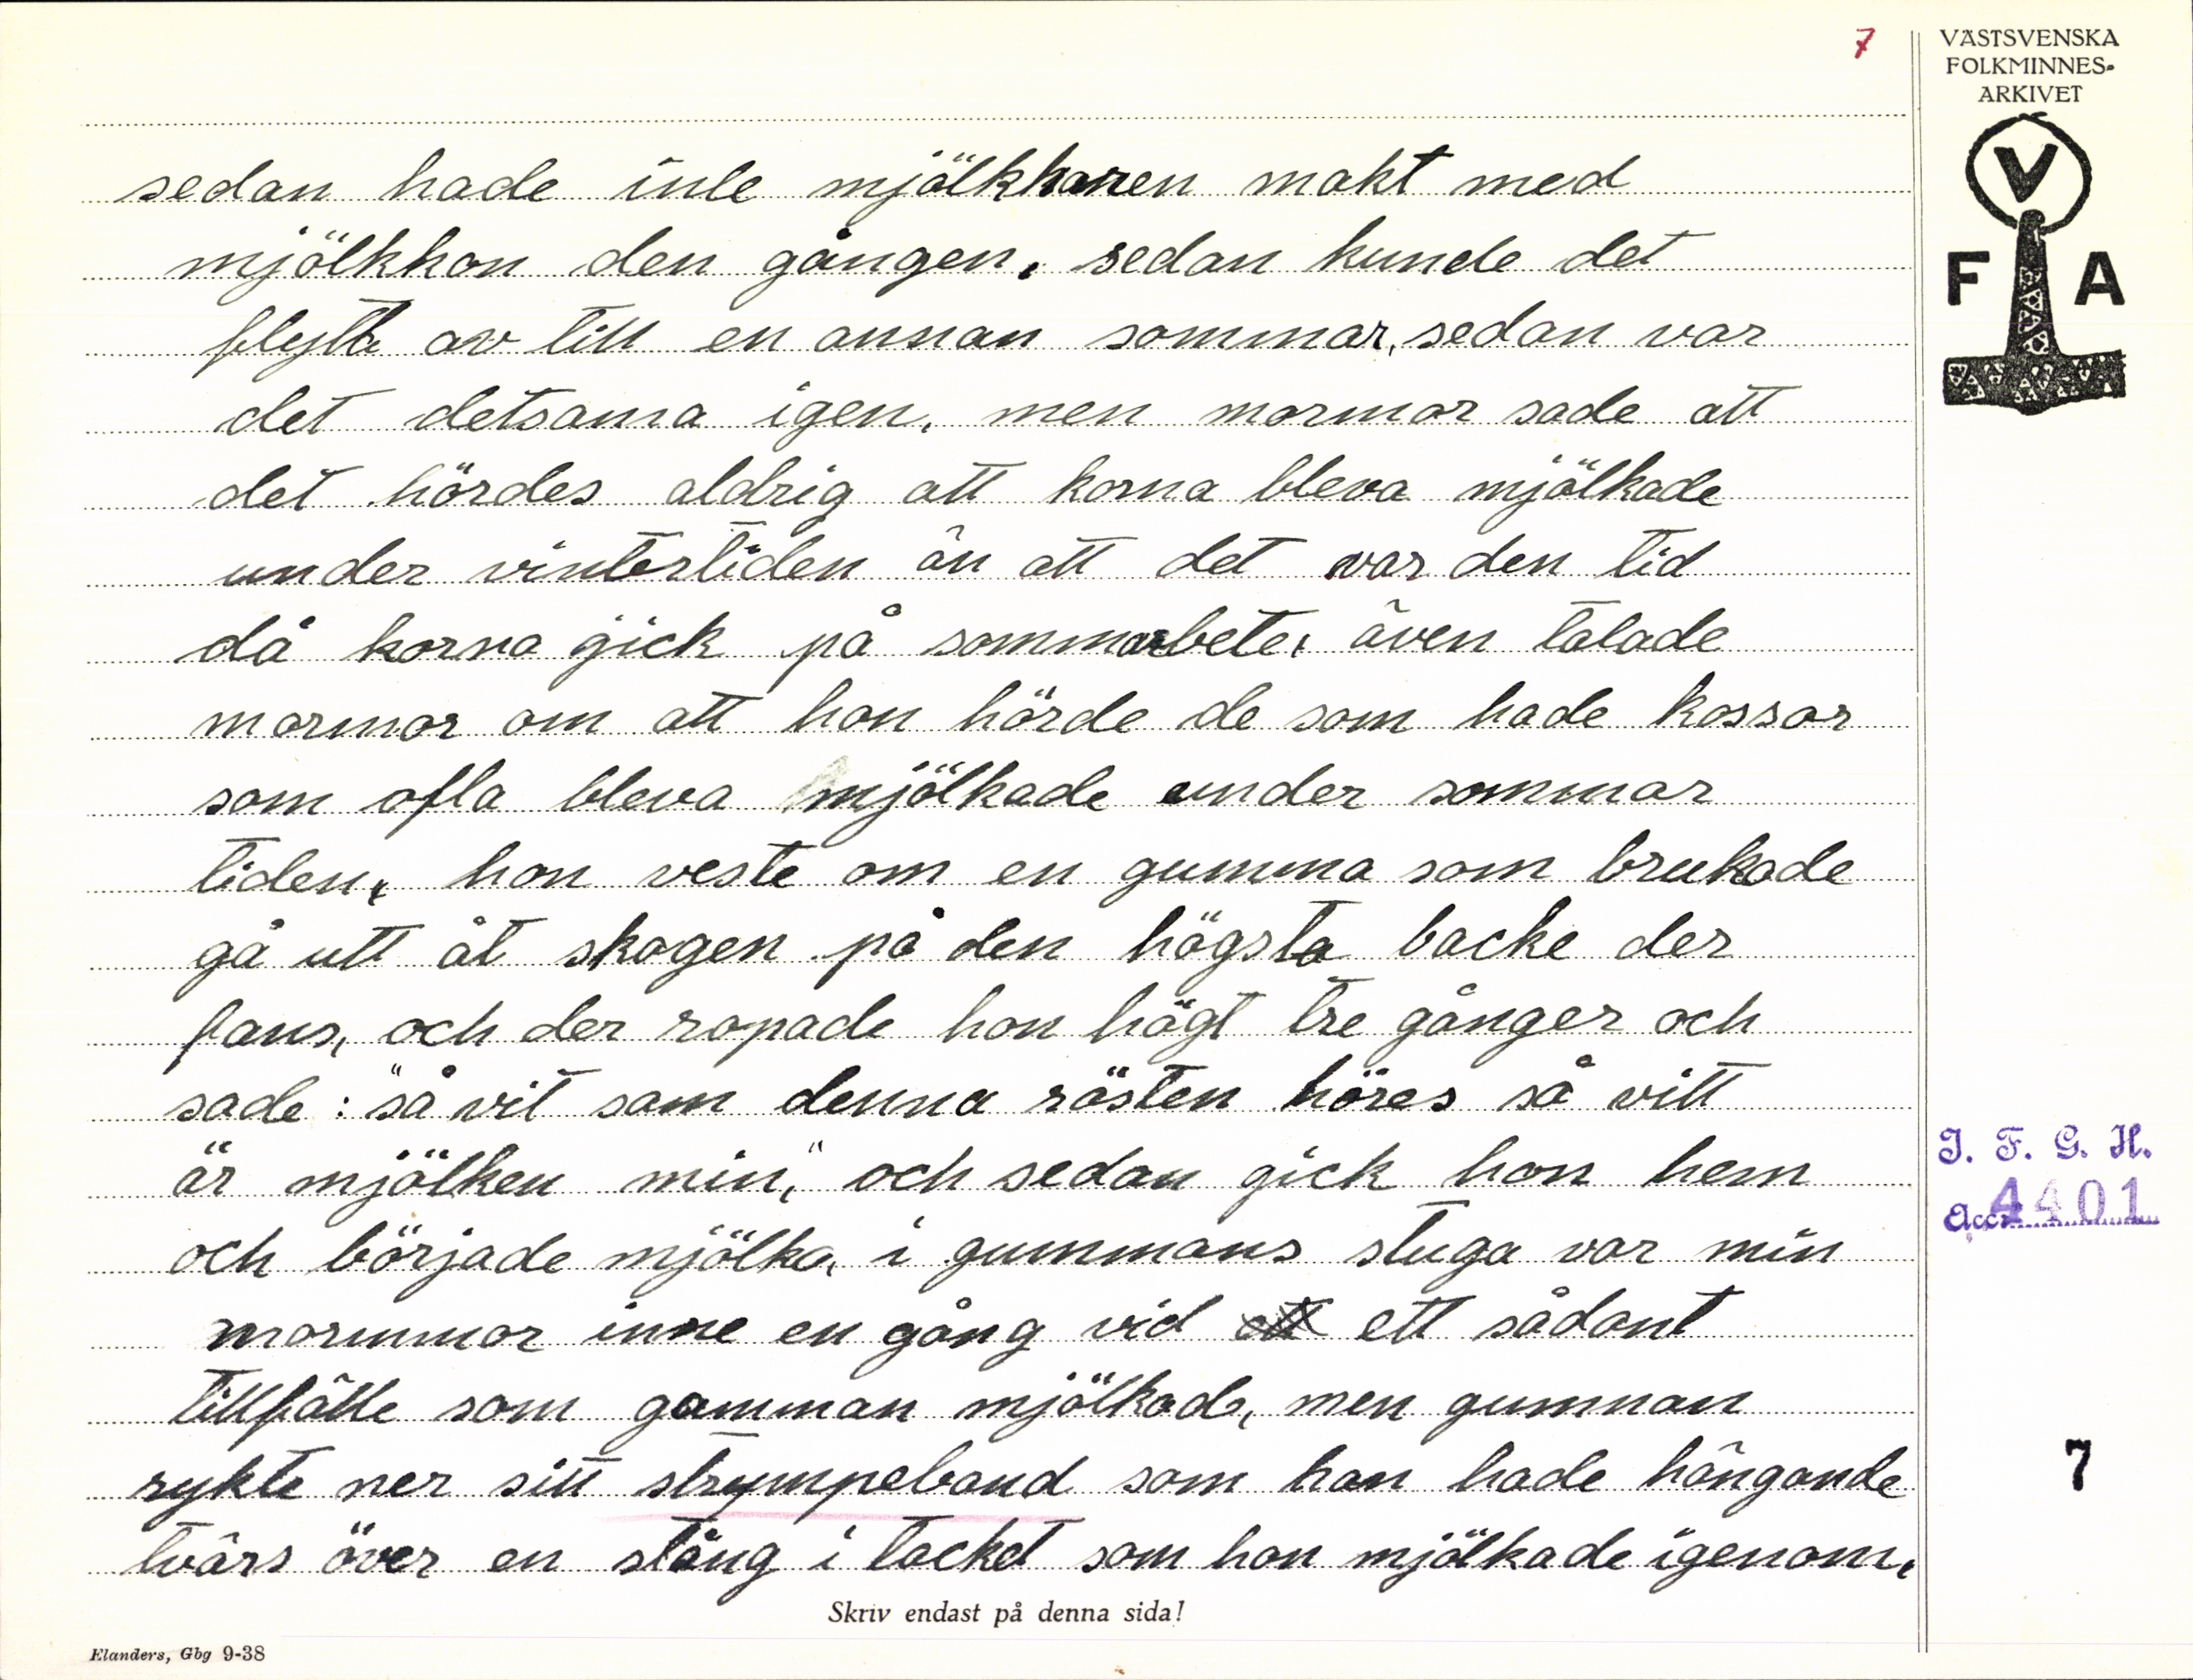 7
VÄSTSVENSKA
FOLKMINNES-
ARKIVET
V
F A
sedan hade inte mjölkharen makt med
mjölkkon den gången. sedan kunde det
flyta av till en annan sommar, sedan var
det detsama igen, men mormor sade att
det hördes aldrig att korna bleva mjölkade
under vintertiden än att det var den tid
då korna gick på sommarbete, även talade
mormor om att hon hörde de som hade kossor
som ofta bleva mjölkade under sommar
tiden, hon veste om en gumma som brukade
gå utt åt skogen på den högsta backe der
fans, och der ropade hon högt tre gånger och
sade: "så vit som denna rösten höres så vitt
är mjölken min," och sedan gick hon hem
och började mjölka, i gummans stuga var min
mormmor inne en gång vid ett sådant
tillfälle som gamman mjölkade, men gumman
rykte ner sitt strympeband som han hade hängande
tvärs över en stång i tacket som hon mjölkade igenom,
I. F. G. H.
Acc. 4401
7
Skriv endast på denna sida!
Elanders, Gbg 9-38